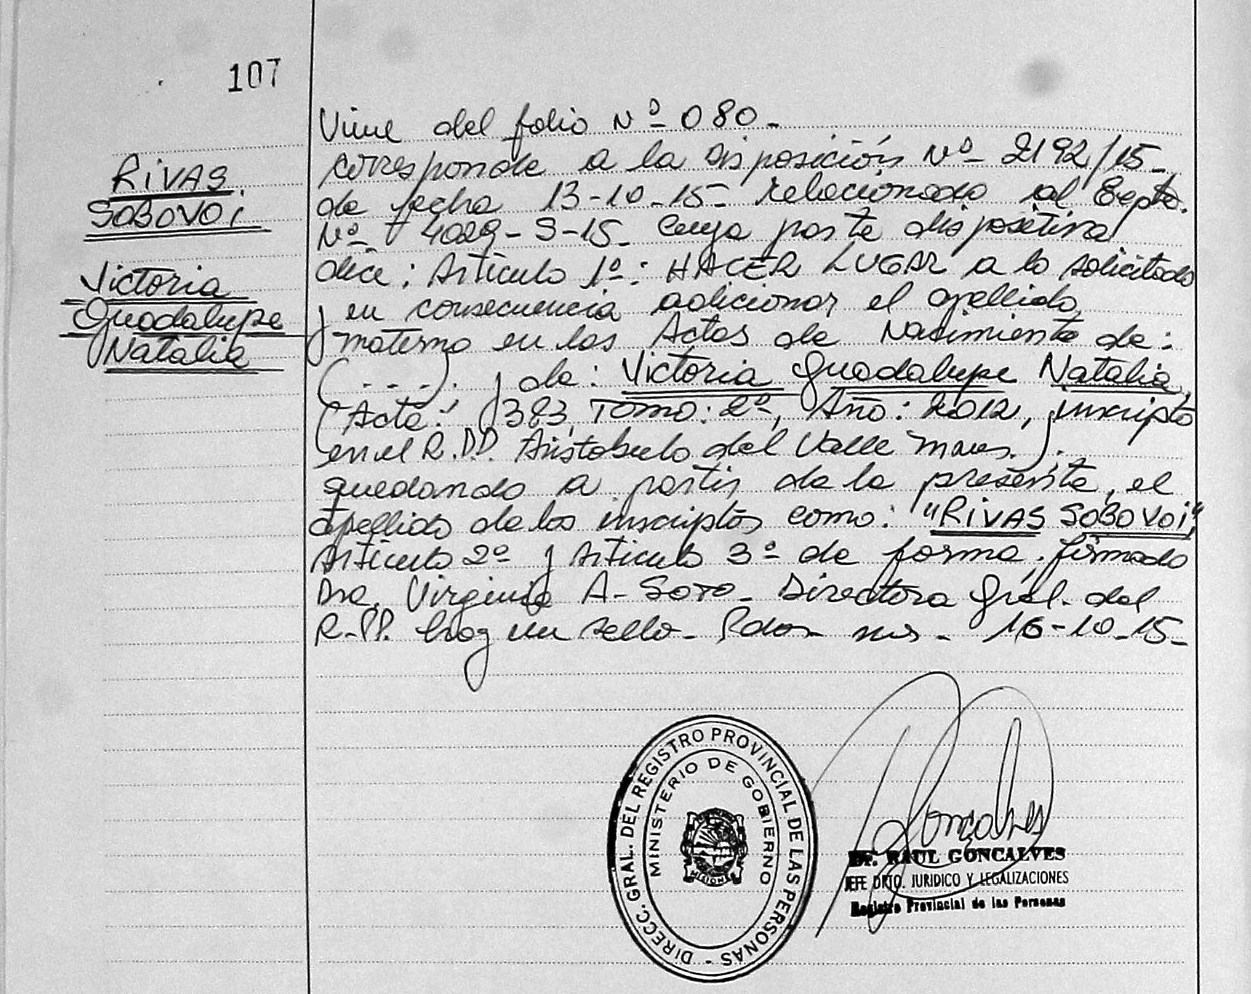 107
RIVAS
SOBOVOI
Victoria
Guadalupe
Natalia
Viene del folio Nº 080-
Corresponde a la Disposición Nº 2192/15-
de fecha 13-10-15- relacionado al Expte.
Nº 4029-S-15- cuya parte dispositiva
dice: Artículo 1º: HACER LUGAR a lo solicitado
y en consecuencia adicionar el apellido
materno en las Actas de Nacimiento de:
(....). y de: Victoria Guadalupe Natalia
(Acta: 383, Tomo: 2º, Año: 2012, inscripta
en el R.PP. Aristobulo del Valle Mnes.).
quedando a partir de la presente, el
apellido de los inscriptos como: "RIVAS SOBOVOI"
Artículo 2º y Artículo 3º de forma, firmado
Dra. Virginia A- Soto- Directora Gral- del
R-PP. hay un sello- Pdas- Ms- 16-10-15-
DIRECC. GRAL. DEL REGISTRO PROVINCIAL DE LAS PERSONAS -
MINISTERIO DE GOBIERNO
MISIONES
Goncalves
Dr. RAUL GONCALVES
JEFE DPTO. JURIDICO Y LEGALIZACIONES
Registro Provincial de las Personas